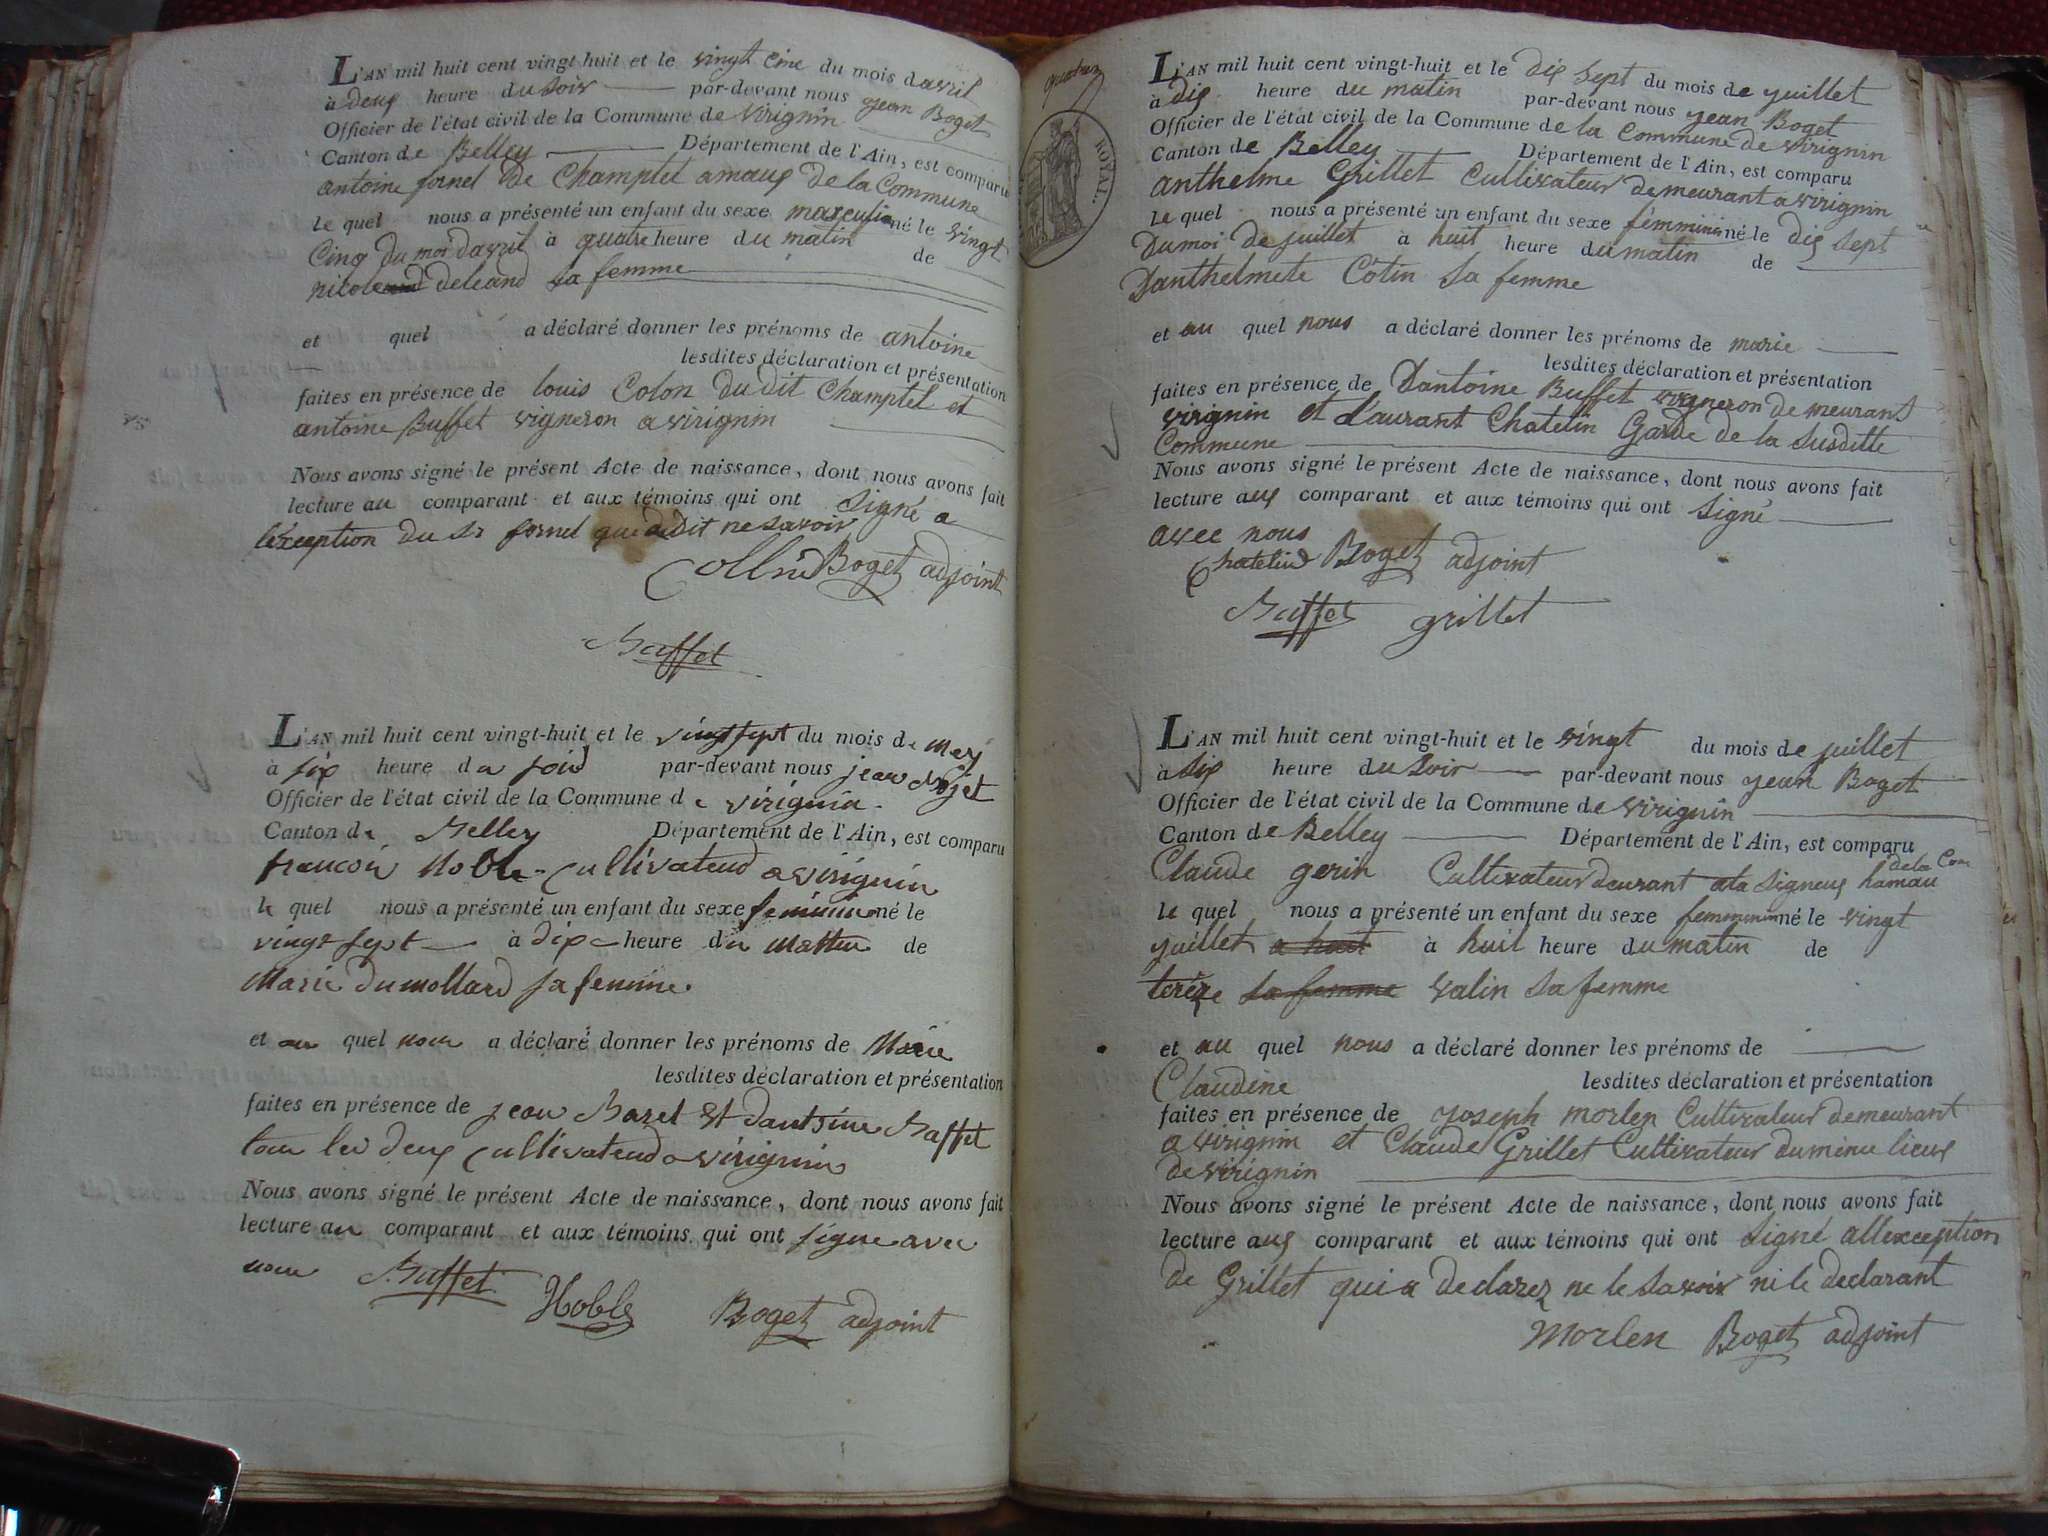 L'AN mil huit cent vingt-huit et le vingt cinc du mois davril
à deux heure du soir par-devant nous jean Boget
Officier de l'état civil de la Commune de virignin
Canton de Belley Département de l'Ain, est comparu
antoine fornel de Champtel amaux de la Commune
Le quel nous a présenté un enfant du sexe masculin né le vingt
Cinq du moi davril à quatre heure du matin de
deleand sa femme
et quel a déclaré donner les prénoms de antoine
lesdites déclaration et présentation
faites en présence de louis Colon du dit Champtel et
antoine Buffet vigneron a virignin
Nous avons signé le présent Acte de naissance, dont nous avons fait
lecture au comparant et aux témoins qui ont Signé a
lexception du Sr fornel qui a dit ne savoir
Boget adjoint
Buffet
L'AN mil huit cent vingt-huit et le vingt sept du mois de may
à six heure du soir par-devant nous jean Bojet
Officier de l'état civil de la Commune de virignin
Canton de Belley Département de l'Ain, est comparu
francois Noble Cultivateur a virignin
le quel nous a présenté un enfant du sexe feminin né le
vingt sept à dix heure du matin de
Marie dumollard sa femme
et au quel nous a déclaré donner les prénoms de Marie
lesdites déclaration et présentation
faites en présence de jean Bazet Et dantoine Buffet
tous les deux Cultivateurs a virignin
Nous avons signé le présent Acte de naissance, dont nous avons fait
lecture au comparant et aux témoins qui ont signe avec
nous Buffet Noble Boget adjoint
ROYAL.
L'AN mil huit cent vingt-huit et le dix sept du mois de juillet
à dix heure du matin par-devant nous jean Boget
Officier de l'état civil de la Commune de la Commune de virignin
Canton de Belley Département de l'Ain, est comparu
anthelme Grillet Cultivateur demeurant a virignin
Le quel nous a présenté un enfant du sexe femminin né le dix sept
Du moi de juillet à huit heure du matin de
Danthelmete Cotin Sa femme
et au quel nous a déclaré donner les prénoms de marie
lesdites déclaration et présentation
faites en présence de Dantoine Buffet vigneron demeurant
virignin et Laurant Chatelin Garde de la Susditte
Commune
Nous avons signé le présent Acte de naissance, dont nous avons fait
lecture aux comparant et aux témoins qui ont Signé
avec nous
Chatelin Boget adjoint
Buffet grillet
L'AN mil huit cent vingt-huit et le vingt du mois de juillet
à six heure du Soir par-devant nous jean Boget
Officier de l'état civil de la Commune de virignin
Canton de Belley Département de l'Ain, est comparu
Claude gerin Cultivateur deurant ala Signeux hamau dela Com
le quel nous a présenté un enfant du sexe femminin né le vingt
juillet a huit à huit heure du matin de
terèze sa femme valin Sa femme
et au quel nous a déclaré donner les prénoms de
Claudine lesdites déclaration et présentation
faites en présence de joseph morlen Cultivateur demeurant
a virignin et Claude Grillet Cultivateur du mime lieux
de virignin
Nous avons signé le présent Acte de naissance, dont nous avons fait
lecture aux comparant et aux témoins qui ont Signé allexception
de Grillet qui a declarez ne le savoir ni le declarant
Morlen Boget adjoint